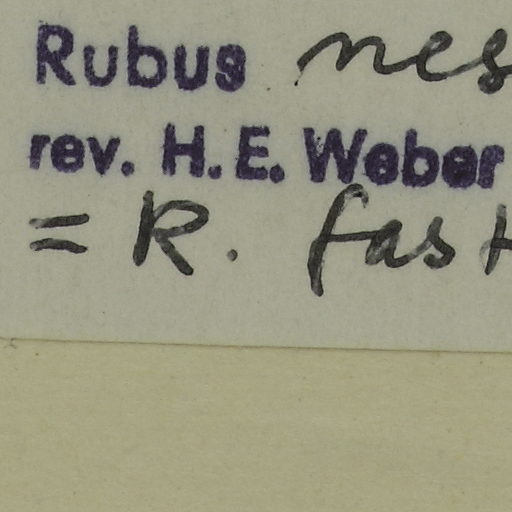 Rubus nes
rev. H. E. Weber
= R. fast